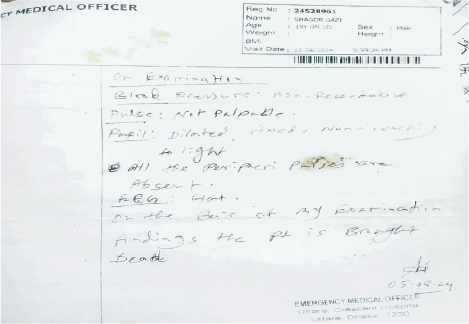 CY MEDICAL OFFICER
Reg No : 24528961
Name : SHAGOR GAZI
Age : 19Y 0M 0D Sex : Male
Weight : Height :
BMI
Visit Date :
On Examination
Blood Pressure: Non-Recordable
Pulse: Not Palpable.
Pupil: Dilated, fixed, non-reacting
to light.
All the Peripheri Pulses are
Absent.
On the Basis of my Examination
findings the pt is Brought
Death
05-08-24
EMERGENCY MEDICAL OFFICER
Uttara Crescent Hospital
Uttara, Dhaka - 1230